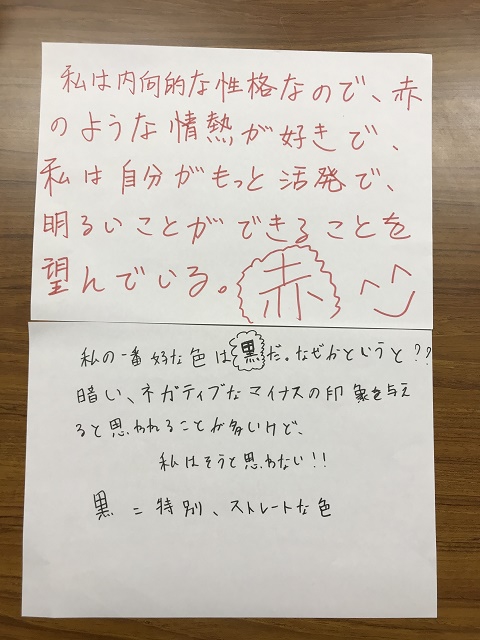 私は内向的な性格なので、赤
のような情熱が好きで、
私は自分がもっと活発で、
明るいことができることを
望んでいる。赤
私の一番好な色は黒だ。なぜかというと??
暗い、ネガティブなマイナスの印象を与え
ると思われることが多いけど、
私はそうと思わない!!
黒=特別、ストレートな色